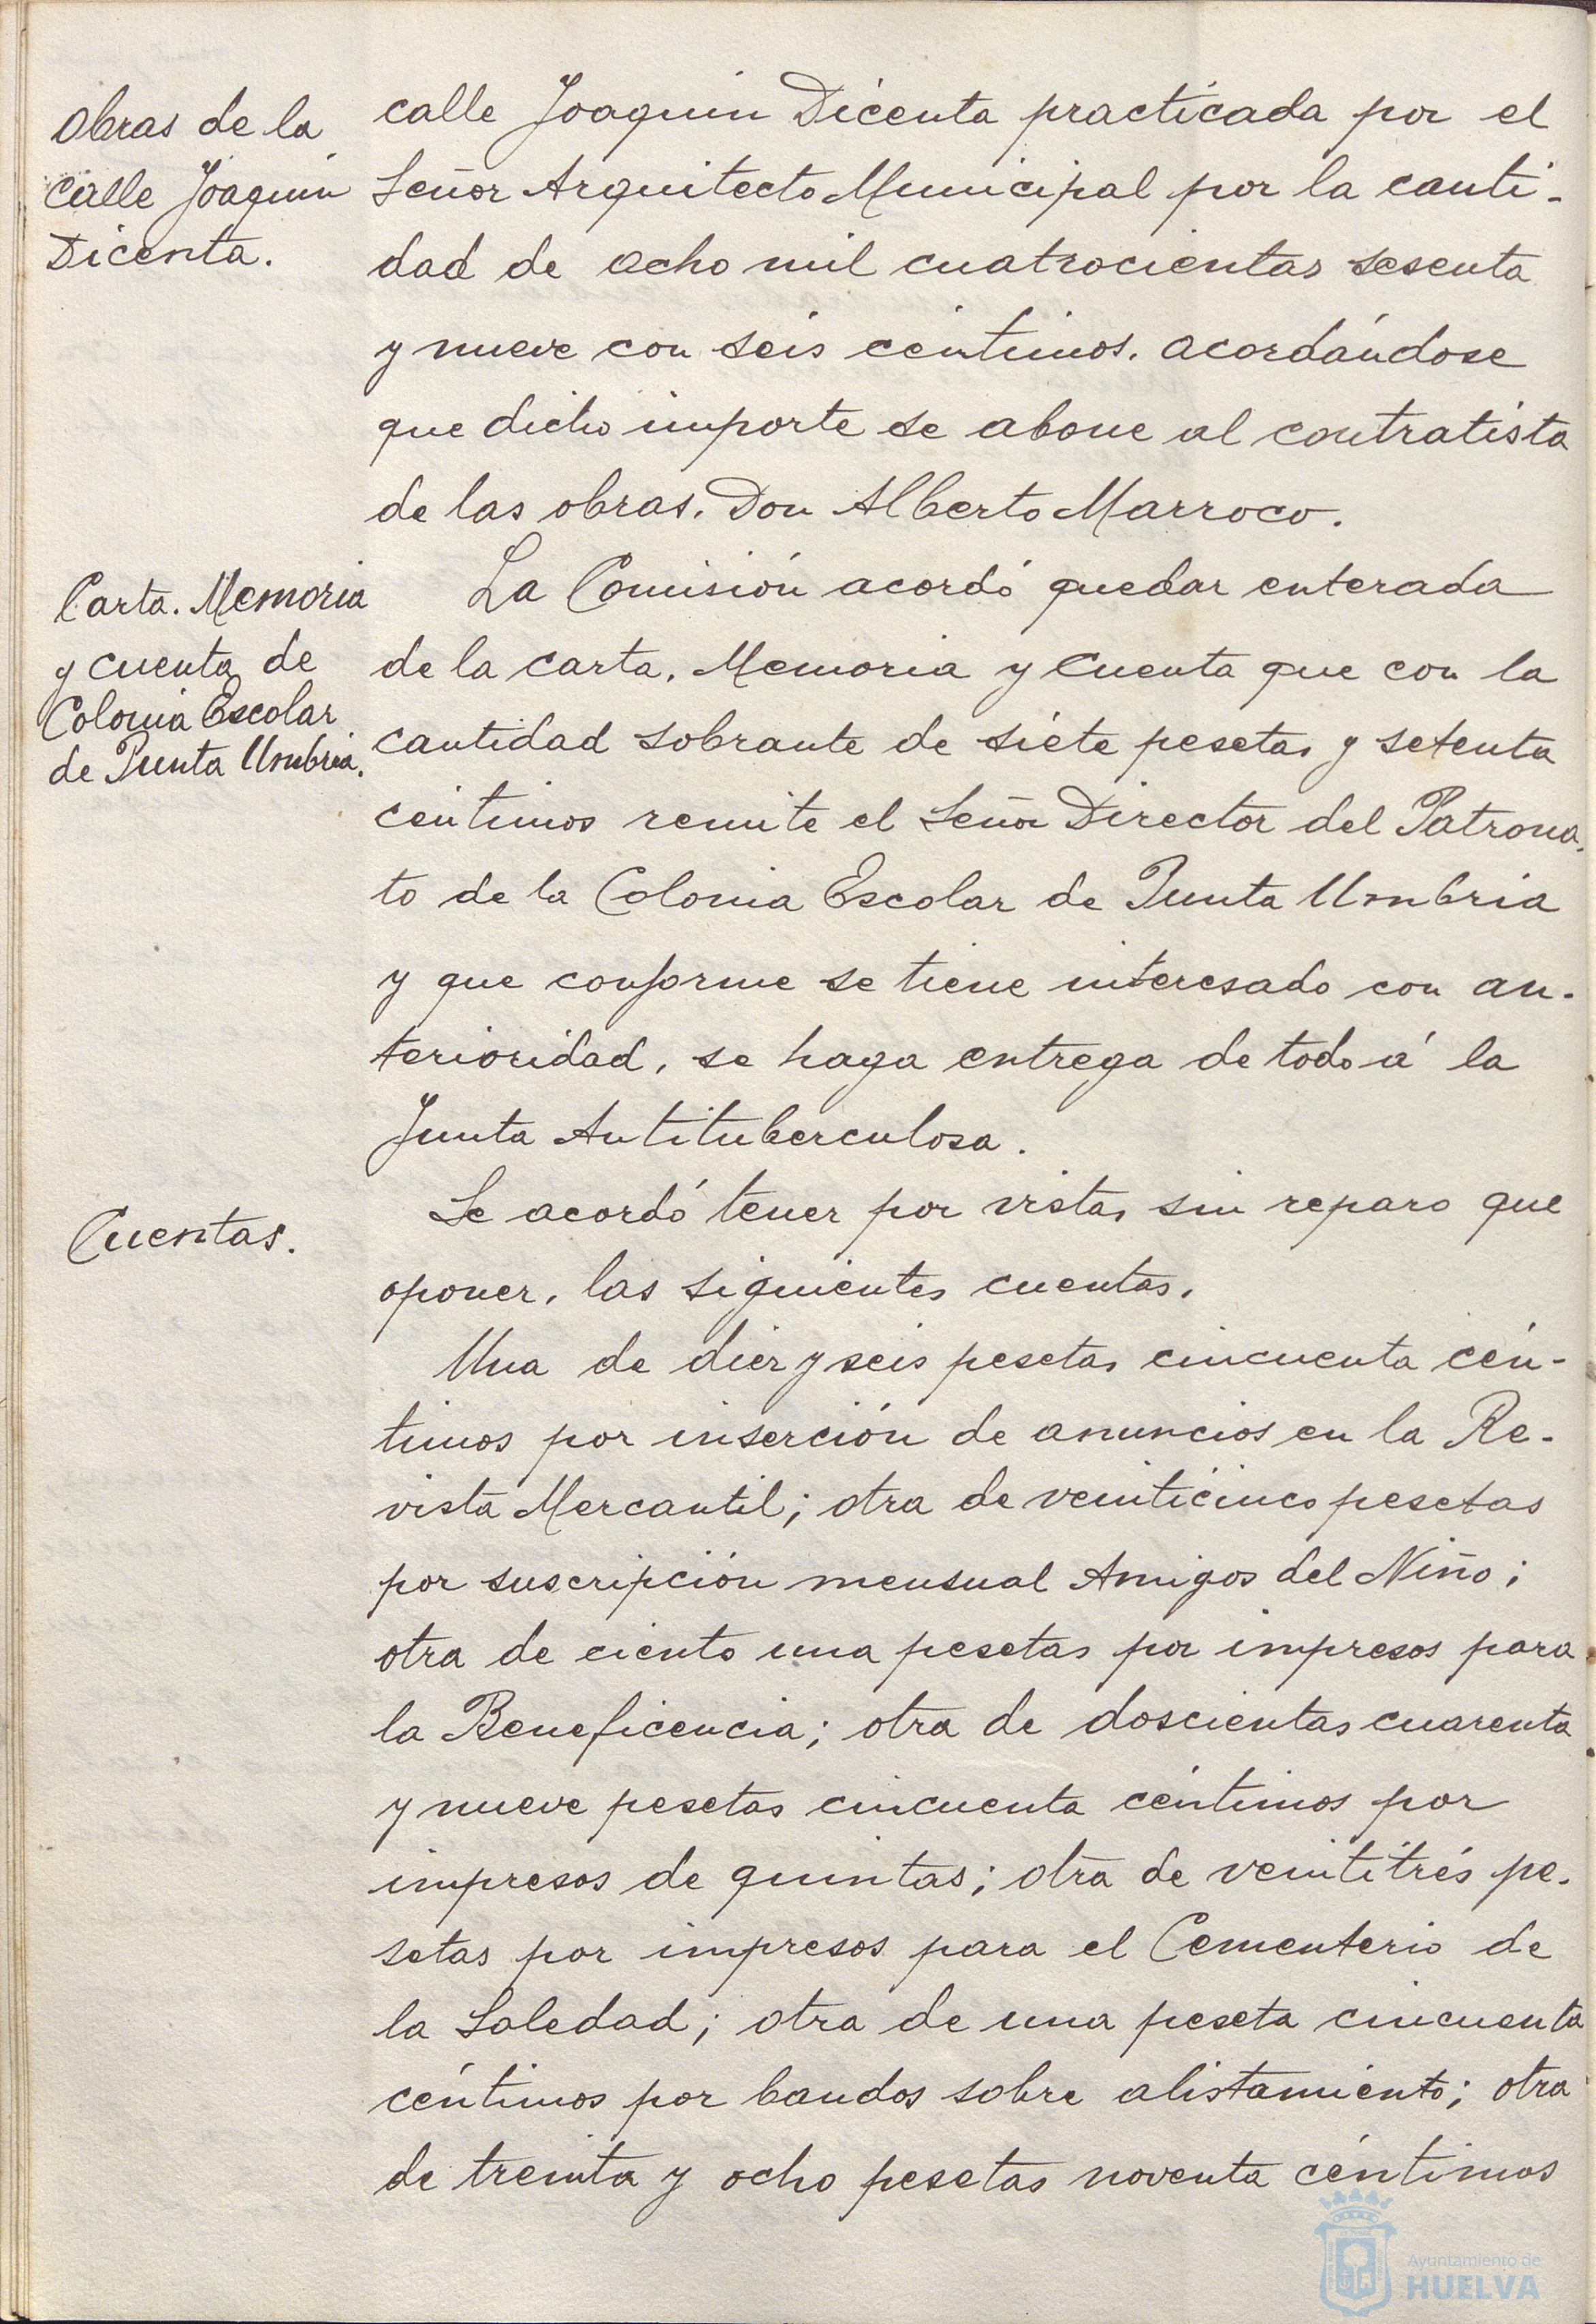 Obras de la
calle Joaquín
Dicenta.
calle Joaquín Dicenta practicada por el
Señor Arquitecto Municipal por la canti-
dad de ocho mil cuatrocientas sesenta
y nueve con seis céntimos. acordándose
que dicho importe se abone al contratista
de las obras. Don Alberto Marroco.
Carta. Memoria
y cuenta de
Colonia Escolar
de Punta Umbría.
La Comisión acordó quedar enterada
de la carta, Memoria y Cuenta que con la
cantidad sobrante de siete pesetas y setenta
céntimos remite el Señor Director del Patrona-
to de la Colonia Escolar de Punta Umbría
y que conforme se tiene interesado con an-
terioridad, se haga entrega de todo á la
Junta Antituberculosa.
Cuentas.
Se acordó tener por vistas sin reparo que
oponer, las siguientes cuentas.
Una de diez y seis pesetas cincuenta cén-
timos por inserción de anuncios en la Re-
vista Mercantil; otra de veinticinco pesetas
por suscripción mensual Amigos del Niño;
otra de ciento una pesetas por impresos para
la Beneficencia; otra de doscientas cuarenta
y nueve pesetas cincuenta céntimos por
impresos de quintas; otra de veintitrés pe-
setas por impresos para el Cementerio de
la Soledad; otra de una peseta cincuenta
céntimos por bandos sobre alistamiento; otra
de treinta y ocho pesetas noventa céntimos
Ayuntamiento de
HUELVA